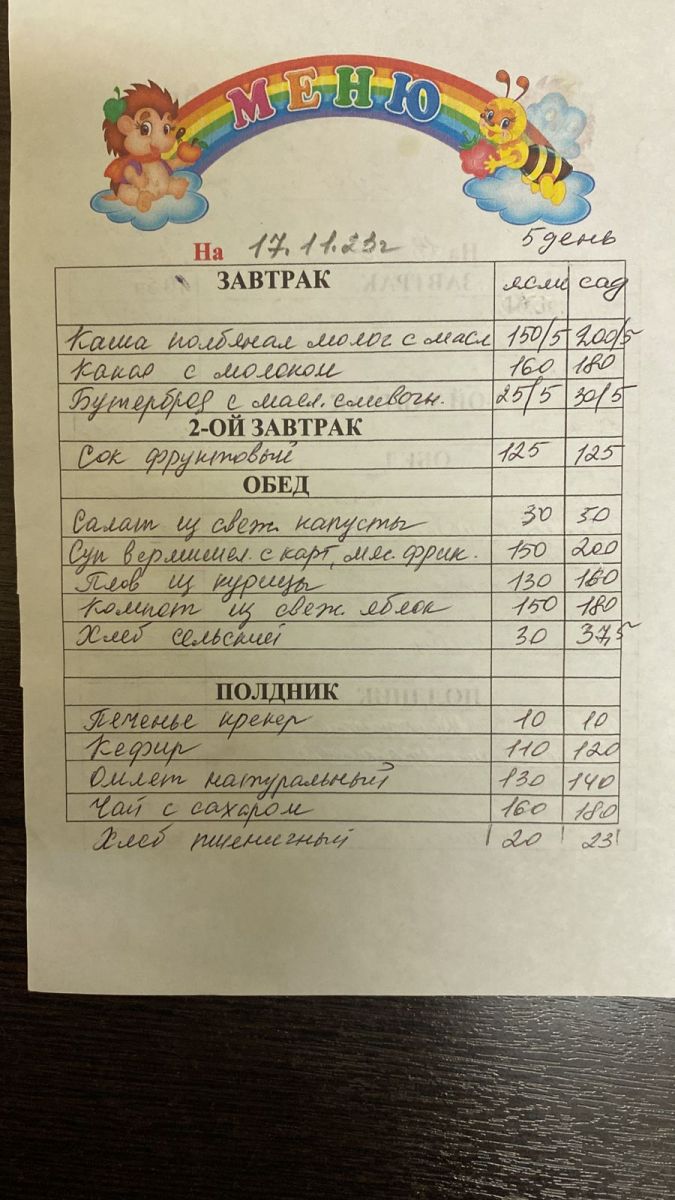 МЕНЮ
На 17.11.23г 5 день
ЗАВТРАК ясли сад
Каша полбяная молоч с масл 150/5 200/5
Какао с молоком 160 180
Бутерброд с масл. сливочн. 25/5 30/5
2-ОЙ ЗАВТРАК
Сок фруктовый 125 125
ОБЕД
Салат из свеж. капусты 30 50
Суп вермишел. с карт, мяс. фрик. 150 200
Плов из курицы 130 160
Компот из свеж. яблок 150 180
Хлеб сельский 30 37,5
ПОЛДНИК
Печенье крекер 10 10
Кефир 110 120
Омлет натуральный 130 140
Чай с сахаром 160 180
Хлеб пшеничный 20 23